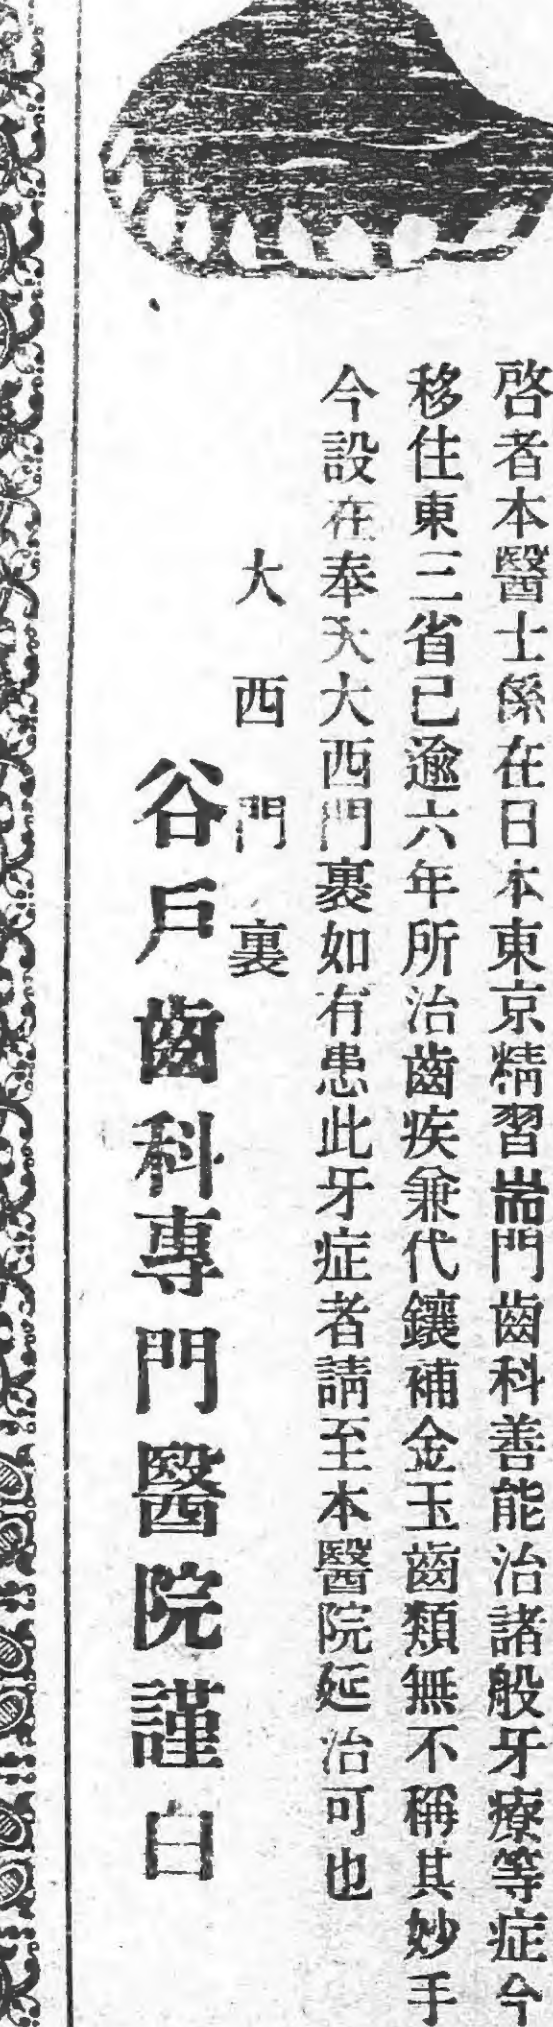 啓者本醫士係在日本東京精習耑門齒科善能治諸般牙療等症今
移住東三省已逾六年所治齒疾兼代鑲補金玉齒類無不稱其妙手
今設在奉天大西門裏如有患此牙症者請至本醫院延治可也
大西門裏
谷戶齒科專門醫院謹白